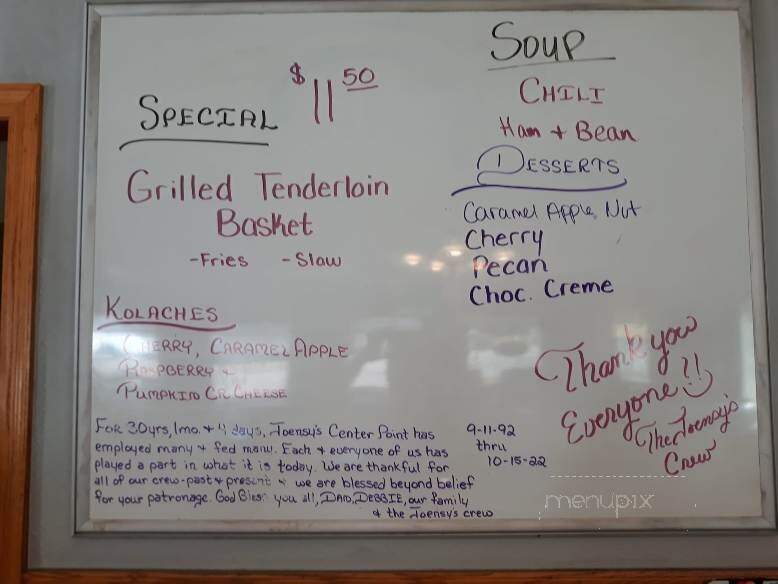 SPECIAL $11.50
Grilled Tenderloin
Basket
-Fries -Slaw
KOLACHES
CHERRY, CARAMEL APPLE
RASPBERRY +
PUMPKIN CR CHEESE
SOUP
CHILI
Ham + Bean
DESSERTS
Caramel Apple Nut
Cherry
Pecan
Choc. Creme
Thank you
Everyone!!
The Joensy's
Crew
For 30yrs, 1mo. + 4 days, Joensy's Center Point has
employed many + fed many. Each + everyone of us has
played a part in what it is today. We are thankful for
all of our crew-past + present + we are blessed beyond belief
for your patronage. God Bless you all, DEBBIE, our family
+ the Joensy's crew
9-11-92
thru
10-15-22
menupix